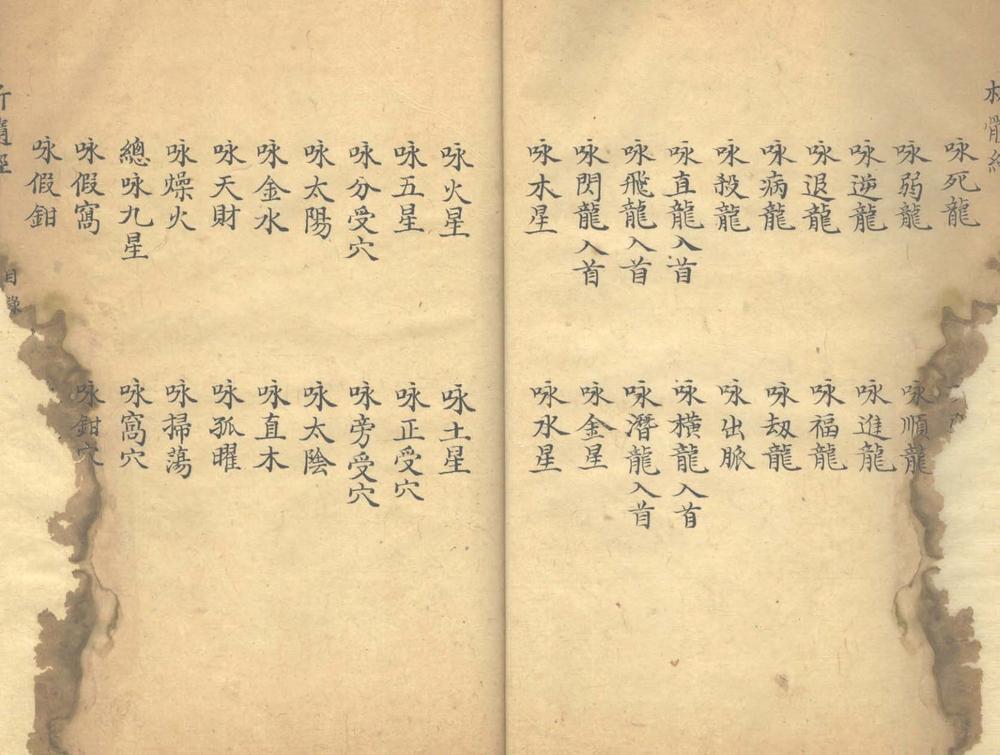 咏死龍
咏弱龍 咏順龍
咏逆龍 咏進龍
咏退龍 咏福龍
咏病龍 咏刼龍
咏殺龍 咏出脈
咏直龍入首 咏橫龍入首
咏飛龍入首 咏潛龍入首
咏閃龍入首 咏金星
咏木星 咏水星
咏火星 咏土星
咏五星 咏正受穴
咏分受穴 咏旁受穴
咏太陽 咏太陰
咏金水 咏直木
咏天財 咏孤曜
咏燥火 咏掃蕩
總咏九星 咏窩穴
咏假窩 咏鉗穴
咏假鉗
目錄